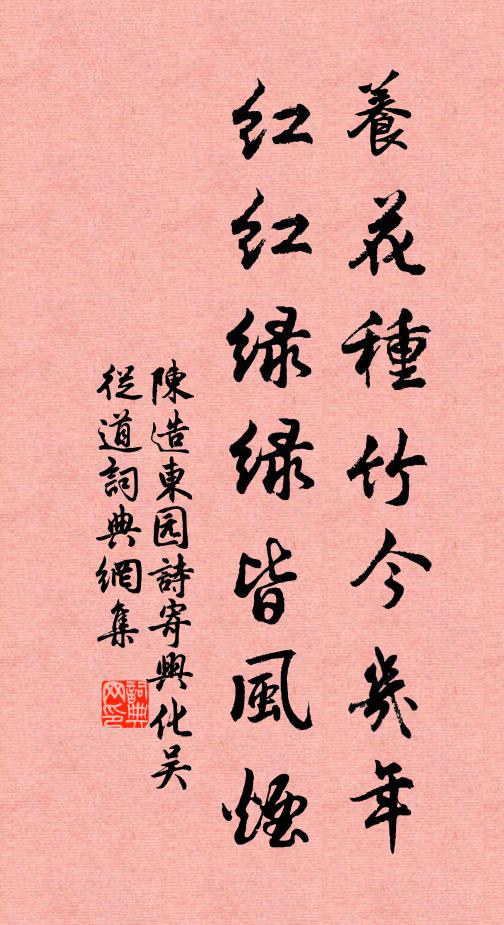 養花種竹今幾年
紅紅緑緑皆風煙
陳造東园詩寄興化吴
從道詞典網集
詞典网印